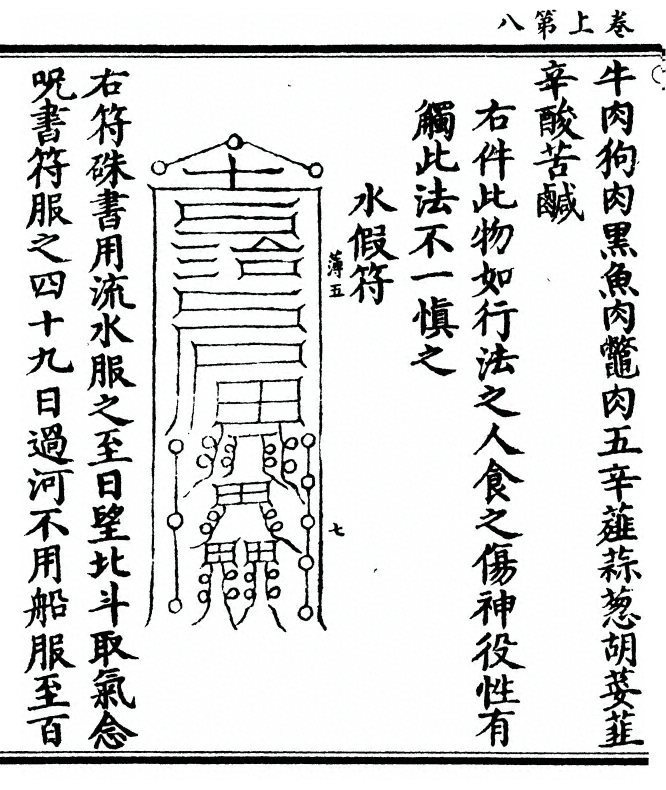 卷上第八
牛肉狗肉黑魚肉鼈肉五辛薤蒜葱胡荽韭
辛酸苦鹹
右件此物如行法之人食之傷神役性有
觸此法不一慎之
水假符
薄五
七
右符硃書用流水服之至日望北斗取氣念
呪書符服之四十九日過河不用船服至百